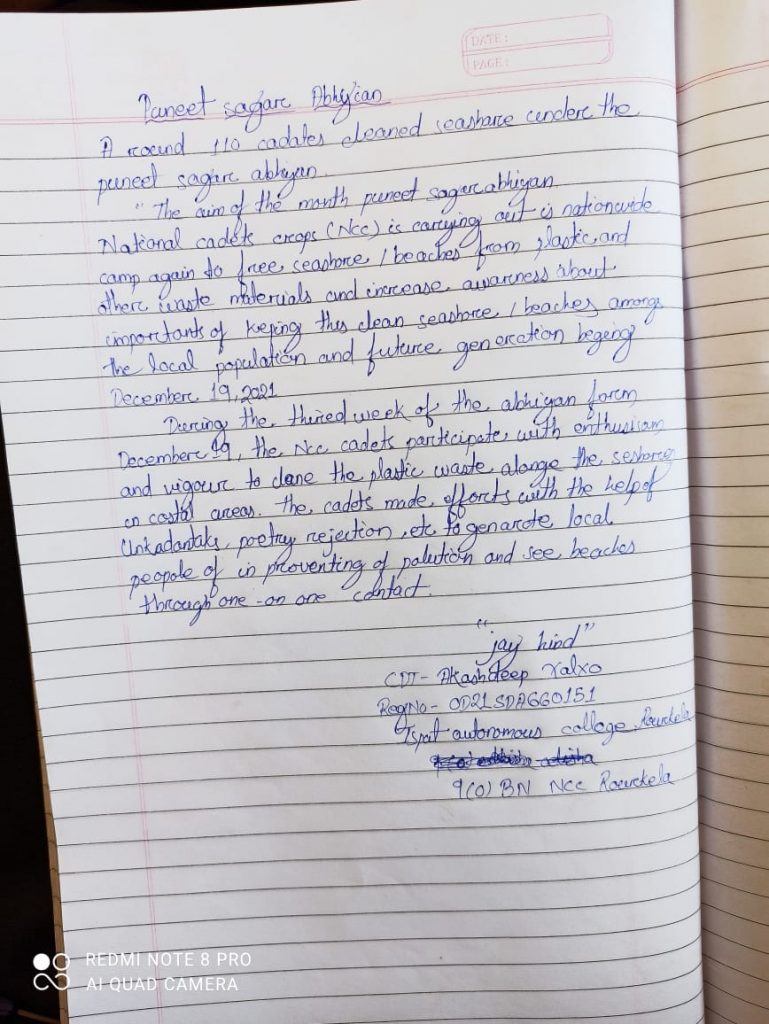 DATE:
PAGE:
Puneet sagarc Abhiyian
A rcound 110 cadates cleaned seashore underc the
puneet sagarc abhiyan.
" The aim of the month puneet sagarc abhiyan
National cadets crops (Ncc) is carrying out is nationwide
camp again to free seashore / beaches from plastic and
otherc waste materials and increase awarness about
importants of Keping this clean seashore / beaches among
the local population and future genercation beging
Decemberc 19, 2021
During the thired week of the abhiyan form
Decemberc 19, the Ncc cadets participate with enthusisam
and vigourc to clane the plastic waste alonge the seshore
in costal areas. the cadets made efforts with the help of
Unkadantaks, poetry rejection, etc to genarote local
peopole of in proventing of polution and see beaches
through one-on one contact.
"jay hind"
CDT- Akashdeep Xalxo
RegNo- OD21SDA660151
Ispat autonomous collage, Rourkela
9(O) BN Ncc Rourckela
REDMI NOTE 8 PRO
AI QUAD CAMERA